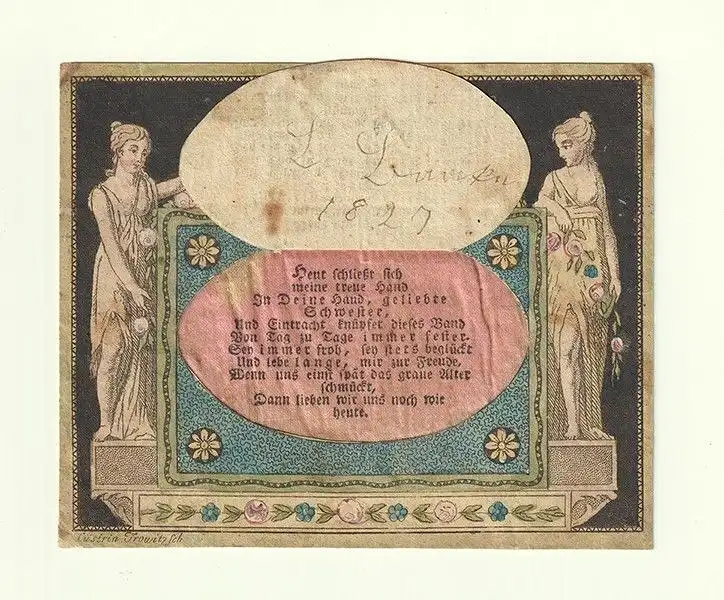 1827
Heut schließt sich
meine treue Hand
In Deine Hand, geliebte
Schwester,
Und Eintracht knüpfet dieses Band
Von Tag zu Tage immer fester.
Sey immer froh, sey stets beglückt
Und lebe lange, mir zur Freude.
Wenn uns einst spät das graue Alter
schmückt,
Dann lieben wir uns noch wie
heute.
Custrin Trowitzsch